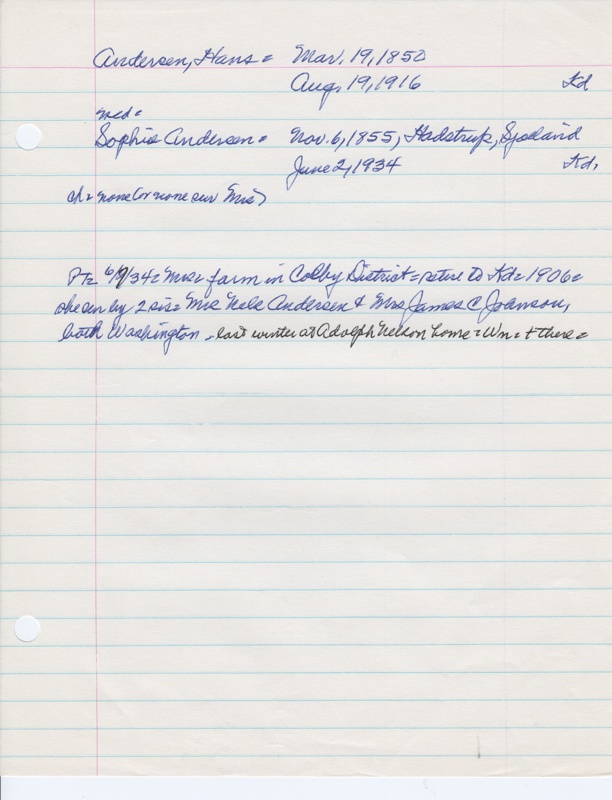 Andersen, Hans = Mar. 19, 1850
Aug. 19, 1916 Kd
med =
Sophie Andersen = Nov. 6, 1855, Hadstrup, Sjoland
June 2, 1934 Kd,
ch = none (or none sur Mrs)
Pt = 6/9/34 = Mrs = farm in Colby District = retire to Kd = 1906 =
she sur by 2 sis = Mrs Nels Andersen & Mrs James C Johnson,
both Washington - last winter at Adolph Nelson home = Wn = + there =